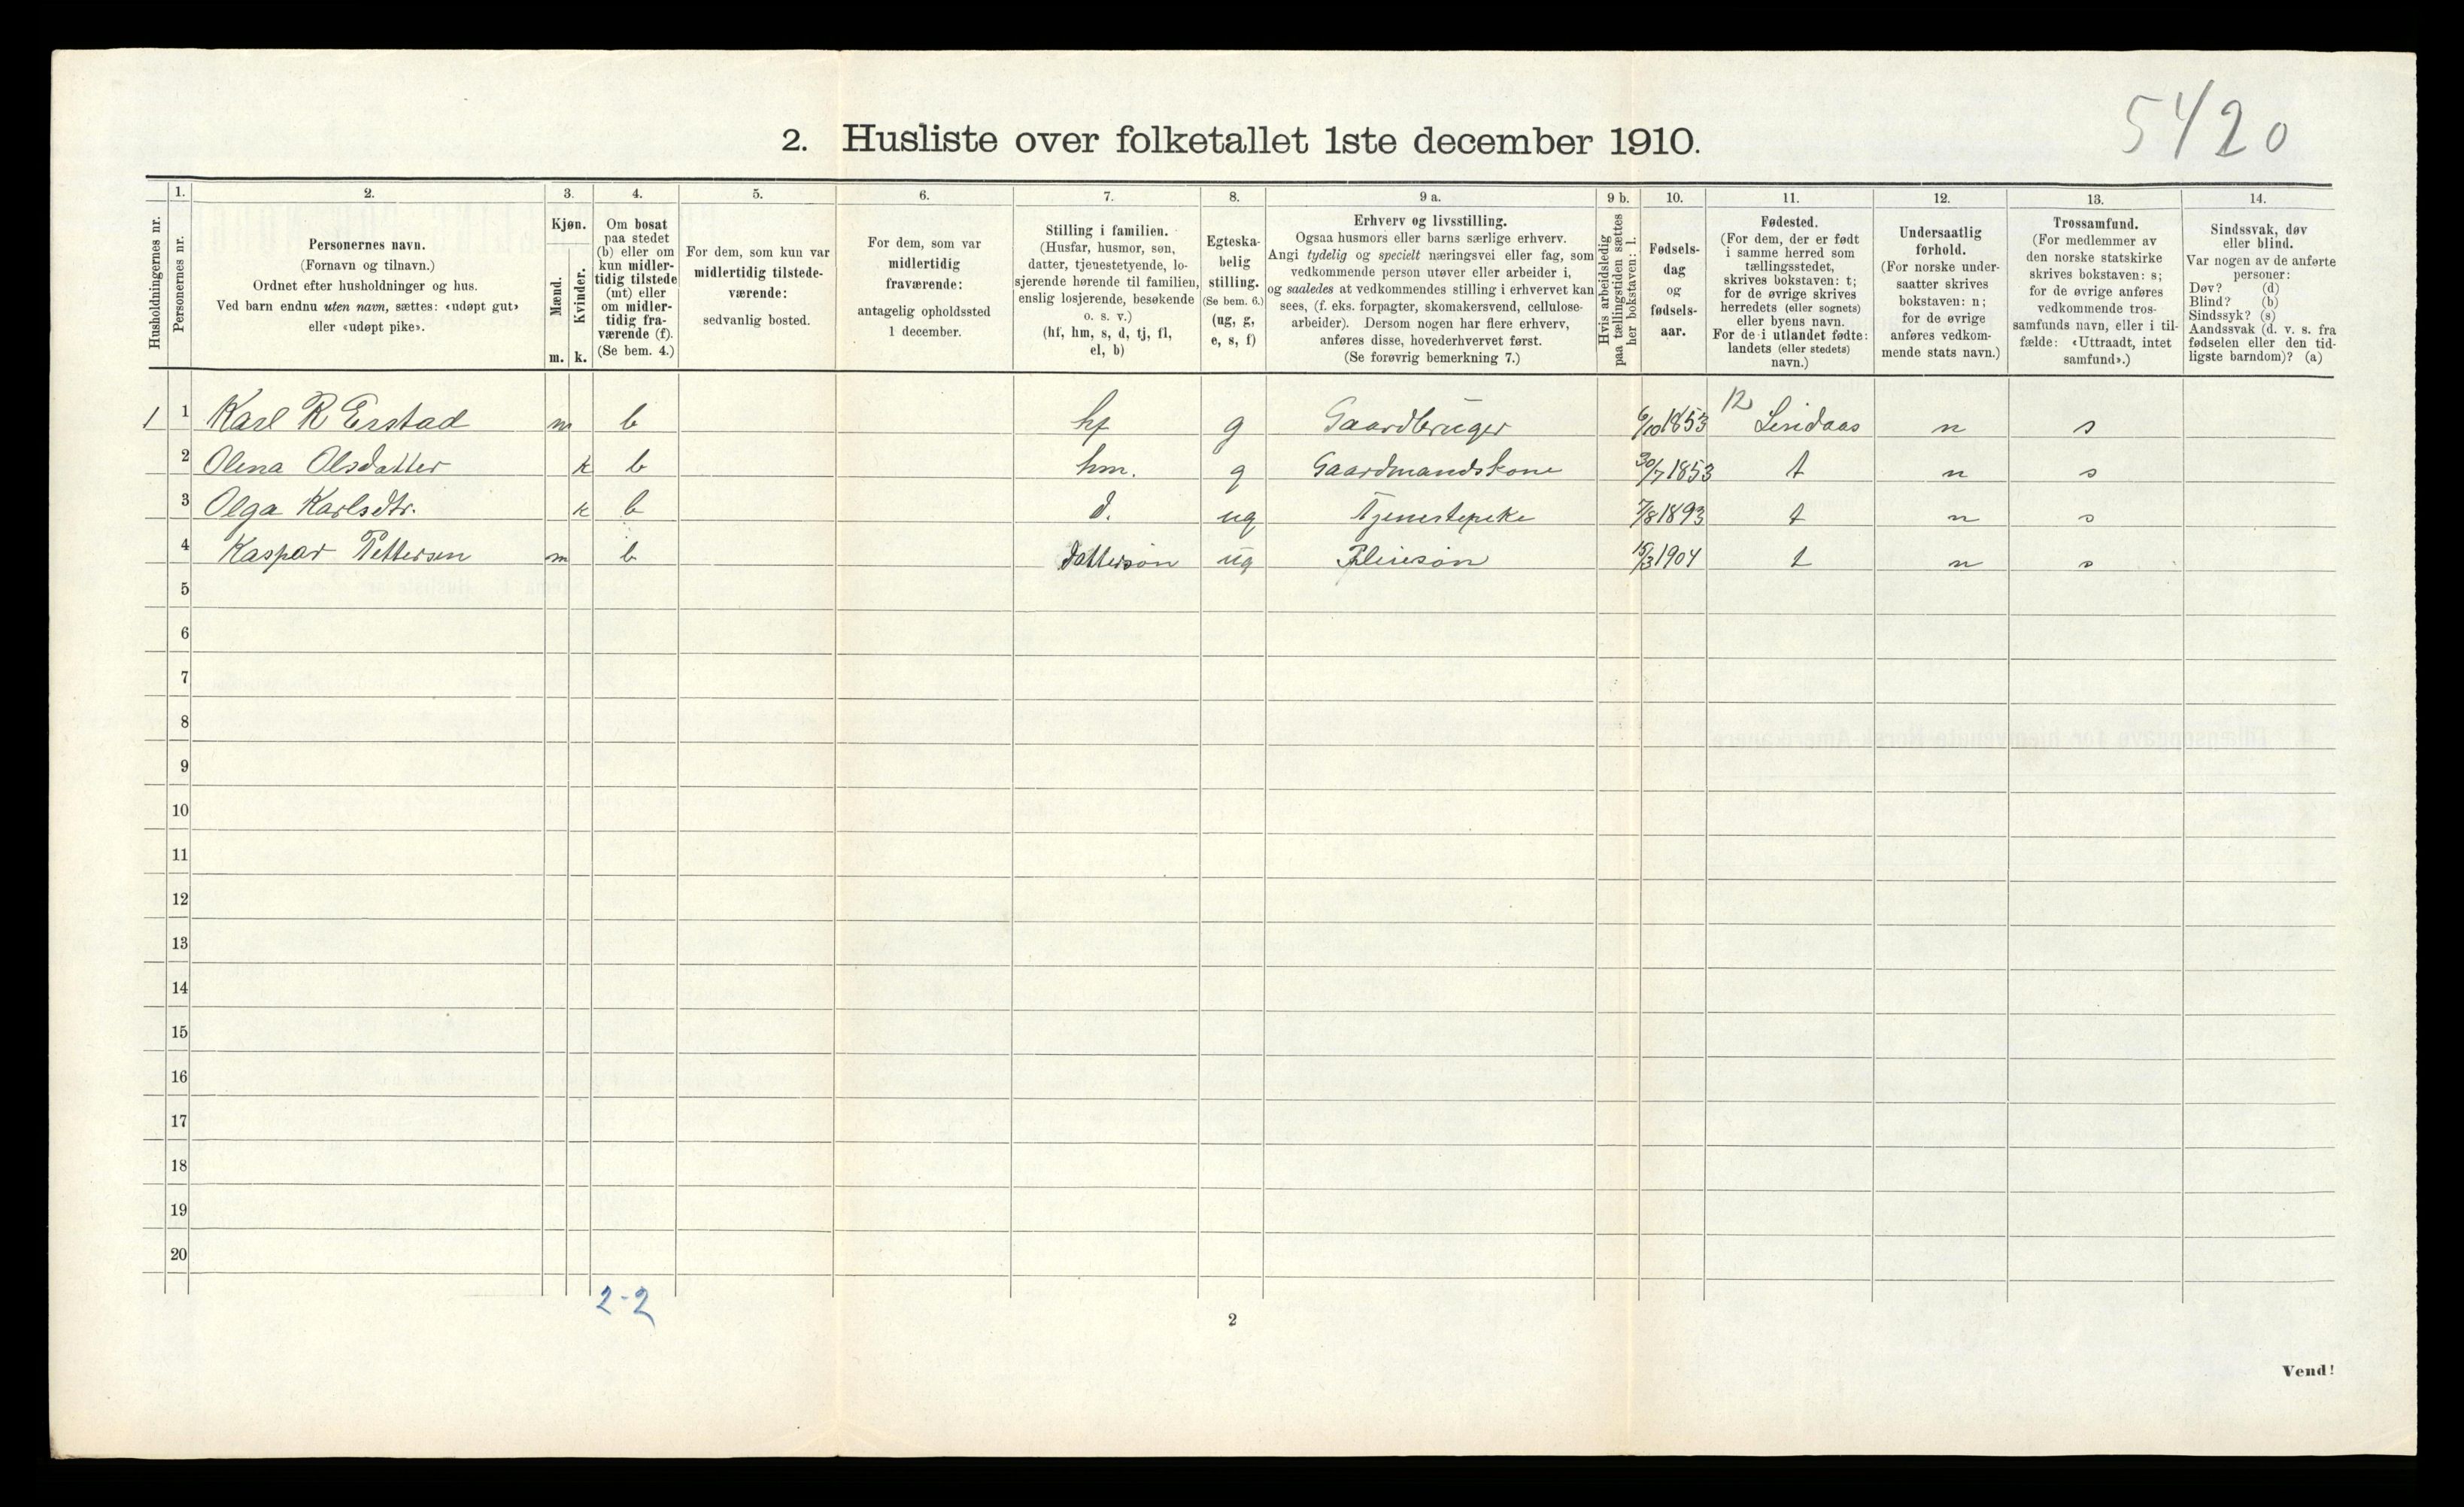 5420
2. Husliste over folketallet 1ste december 1910.
Husholdningernes nr.
1.
Personernes nr.
2.
Personernes navn.
(Fornavn og tilnavn.)
Ordnet efter husholdninger og hus.
Ved barn endnu uten navn, sættes: «udøpt gut»
eller «udøpt pike».
3.
Kjøn.
Mænd.
m.
Kvinder.
k.
4.
Om bosat
paa stedet
(b) eller om
kun midler-
tidig tilstede
(mt) eller
om midler-
tidig fra-
værende (f).
(Se bem. 4.)
5.
For dem, som kun var
midlertidig tilstede-
værende:
sedvanlig bosted.
6.
For dem, som var
midlertidig
fraværende:
antagelig opholdssted
1 december.
7.
Stilling i familien.
(Husfar, husmor, søn,
datter, tjenestetyende, lo-
sjerende hørende til familien,
enslig losjerende, besøkende
o. s. v.)
(hf, hm, s, d, tj, fl,
el, b)
8.
Egteska-
belig
stilling.
(Se bem. 6.)
(ug, g,
e, s, f)
9 a.
Erhverv og livsstilling.
Ogsaa husmors eller barns særlige erhverv.
Angi tydelig og specielt næringsvei eller fag, som
vedkommende person utøver eller arbeider i,
og saaledes at vedkommendes stilling i erhvervet kan
sees, (f. eks. forpagter, skomakersvend, cellulose-
arbeider). Dersom nogen har flere erhverv,
anføres disse, hovederhvervet først.
(Se forøvrig bemerkning 7.)
9 b.
Hvis arbeidsledig
paa tællingstiden sættes
her bokstaven: l.
10.
Fødsels-
dag
og
fødsels-
aar.
11.
Fødested.
(For dem, der er født
i samme herred som
tællingsstedet,
skrives bokstaven: t;
for de øvrige skrives
herredets (eller sognets)
eller byens navn.
For de i utlandet fødte:
landets (eller stedets)
navn.)
12.
Undersaatlig
forhold.
(For norske under-
saatter skrives
bokstaven: n;
for de øvrige
anføres vedkom-
mende stats navn.)
13.
Trossamfund.
(For medlemmer av
den norske statskirke
skrives bokstaven: s;
for de øvrige anføres
vedkommende tros-
samfunds navn, eller i til-
fælde: «Uttraadt, intet
samfund».)
14.
Sindssvak, døv
eller blind.
Var nogen av de anførte
personer:
Døv? (d)
Blind? (b)
Sindssyk? (s)
Aandssvak (d. v. s. fra
fødselen eller den tid-
ligste barndom)? (a)
1 1 Karl R Erstad m b hf g Gaardbruger 6/10 1853 12 Lindaas n s
2 Olena Olsdatter k b hm. g Gaardmandskone 30/7 1853 t n s
3 Olga Karlsdtr. k b d. ug Tjenestepike 7/8 1893 t n s
4 Kaspar Pettersen m b dattersøn ug Pleiesøn 15/3 1904 t n s
5
6
7
8
9
10
11
12
13
14
15
16
17
18
19
20
2-2
2
Vend!